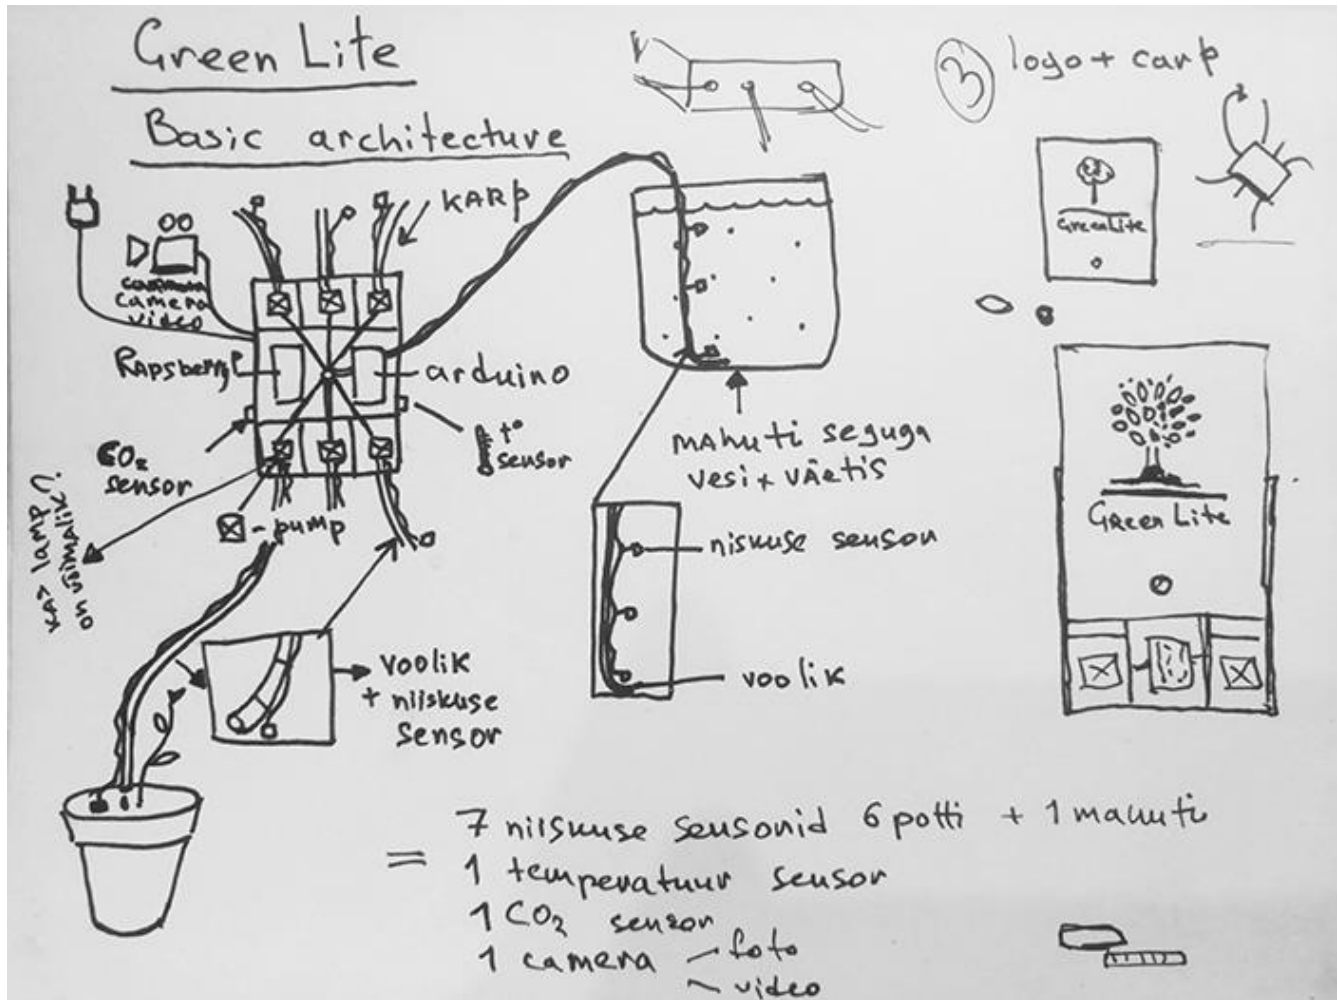 Green Lite
Basic architecture
3 logo + carp
KARP
GreenLite
camera
video
Rapsberry
arduino
CO2
sensor
t°
sensor
- pump
mahuti seguga
vesi + väetis
kas lamp
on võimalik?
niskuse sensor
voolik
voolik
+ niiskuse
sensor
Green Lite
= 7 niiskuse sensorid 6 potti + 1 mahuti
1 temperatuur sensor
1 CO2 sensor
1 camera - foto
- video